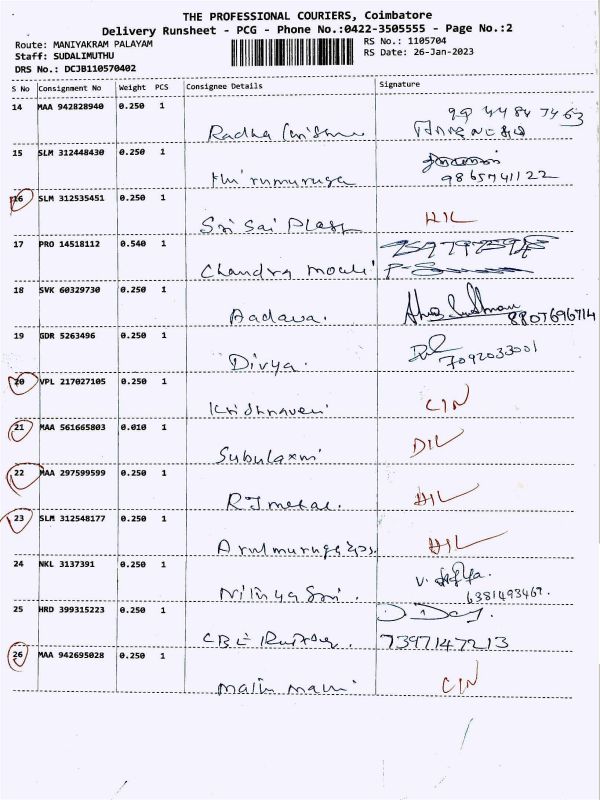 THE PROFESSIONAL COURIERS, Coimbatore
Delivery Runsheet - PCG - Phone No.:0422-3505555 - Page No.:2
Route: MANIYAKRAM PALAYAM
RS No.: 1105704
Staff: SUDALIMUTHU
RS Date: 26-Jan-2023
DRS No.: DCJB110570402
S No Consignment No Weight PCS Consignee Details Signature
14 MAA 942828940 0.250 1
Radha
15 SLM 312448430 0.250 1
9865741122
16 SLM 312535451 0.250 1
Sri Sai Plast
17 PRO 14518112 0.540 1
Chandra mouli
18 SVK 60329730 0.250 1
Aadava. 8807696714
19 GDR 5263496 0.250 1
Divya. 7092033001
20 VPL 217027105 0.250 1
Krishnaveni CIN
21 MAA 561665803 0.010 1
Subulaxmi DIL
22 MAA 297599599 0.250 1
RJ metal.
23 SLM 312548177 0.250 1
24 NKL 3137391 0.250 1
6381493467.
25 HRD 399315223 0.250 1
CBE 7397147213
26 MAA 942695028 0.250 1
CIN